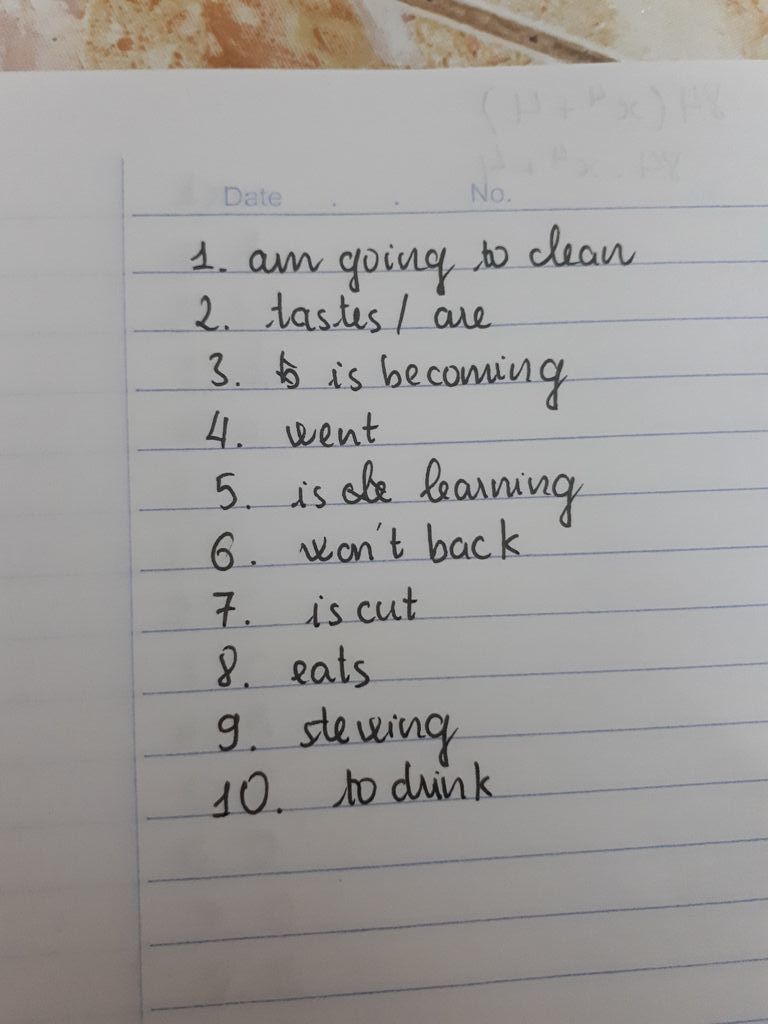 Date . . No.
1. am going to clean
2. tastes / are
3. is becoming
4. went
5. is learning
6. won't back
7. is cut
8. eats
9. stewing
10. to drink